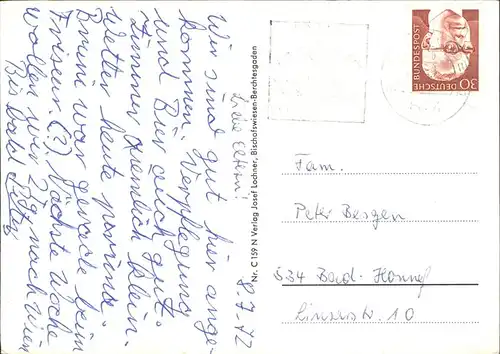 Wir sind gut hier ange-
kommen. Verpflegung
und Bier auch gut.
Zimmer ziemlich klein.
Wetter heute prima.
Bruni war gerade beim
Friseur. (?) Nächste Woche
wollen wir 2 Tg. nach Wien
Bis bald
An die Eltern!
8.7.72
Nr. C 159 N Verlag Josef Lochner, Bischofswiesen-Berchtesgaden
DEUTSCHE BUNDESPOST
30
Fam.
Peter Bergen
534 Bad-Honnef
Linzerstr. 10